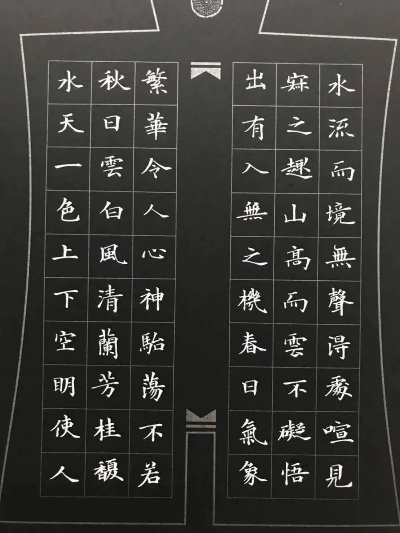 水流而境無聲得處喧見
寂之趣山高而雲不礙悟
出有入無之機春日氣象
繁華令人心神駘蕩不若
秋日雲白風清蘭芳桂馥
水天一色上下空明使人